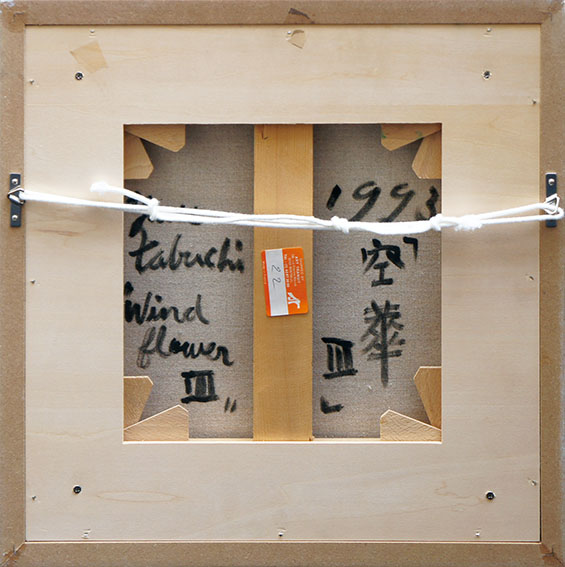 Tabuchi
Wind
flower
III"
1993
「空
華
III」
22